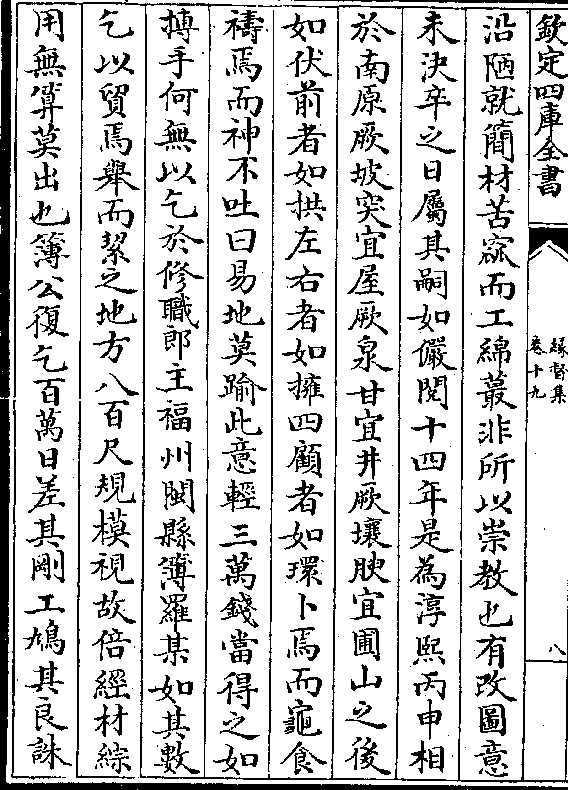 欽定四庫全書
緣督集
卷十九
八
沿陋就簡材苦窳而工綿蕞非所以崇教也有改圖意
未決卒之日屬其嗣如儼閱十四年是為淳熙丙申相
於南原厥坡突宜屋厥泉甘宜井厥壤腴宜圃山之後
如伏前者如拱左右者如擁四顧者如環卜焉而龜食
禱焉而神不吐曰易地莫踰此意輕三萬錢當得之如
摶手何無以乞於修職郎主福州閩縣簿羅某如其數
乞以貿焉舉而絜之地方八百尺規模視故倍經材綜
用無算莫出也簿公復乞百萬日差其剛工鳩其良誅